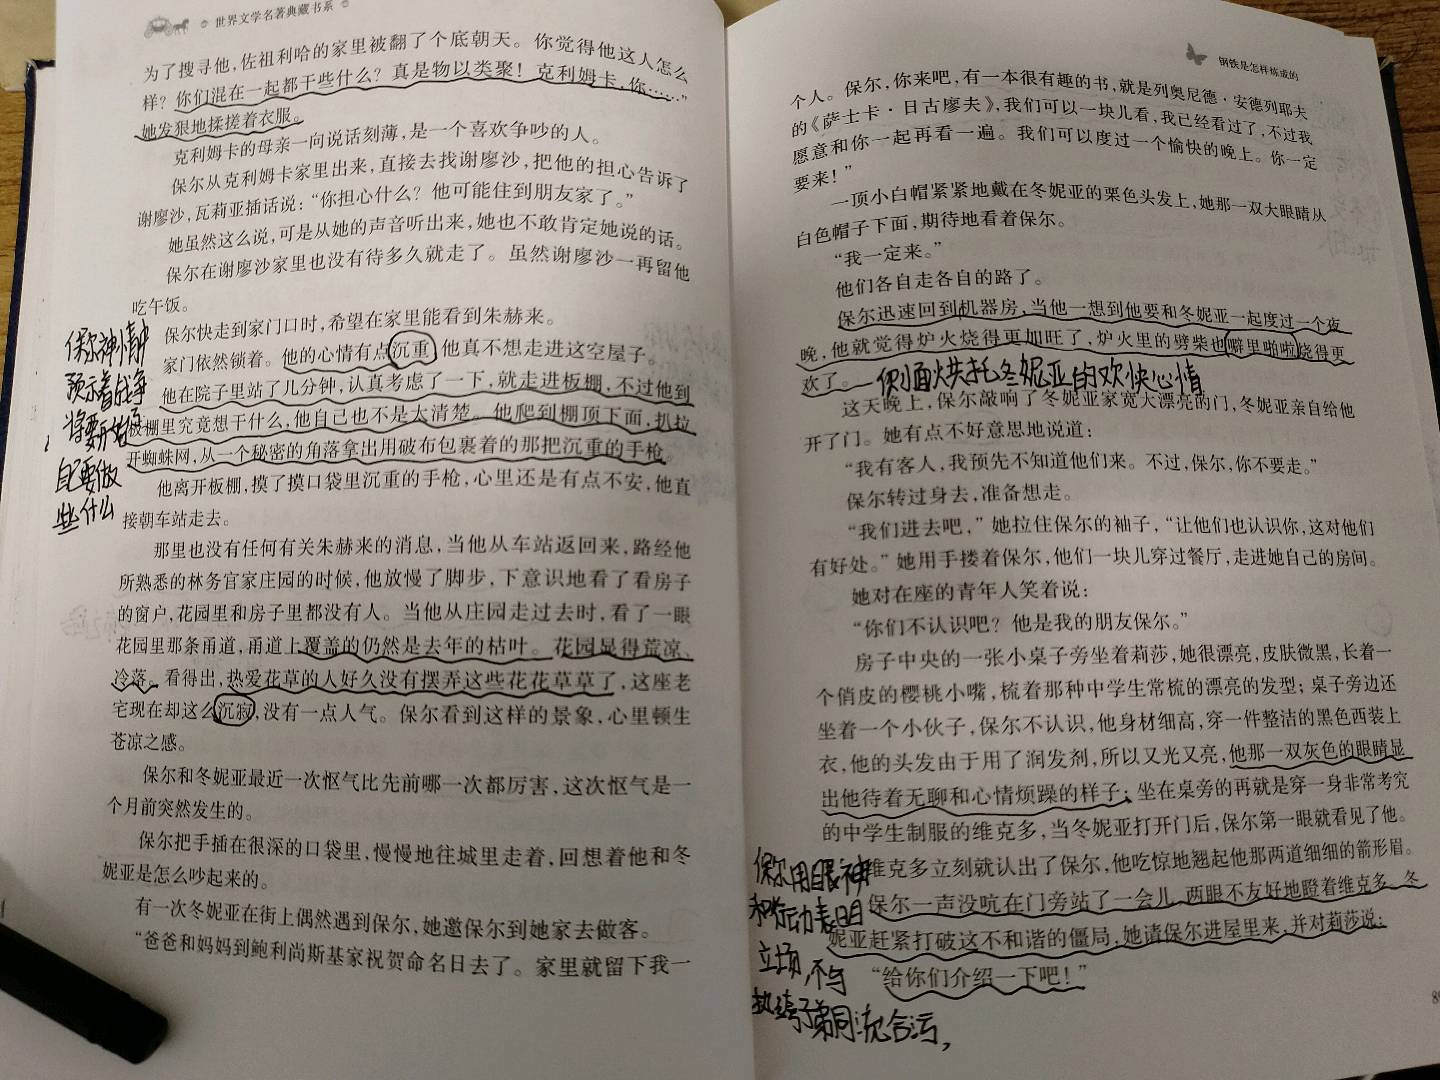 世界文学名著典藏书系
为了搜寻他,佐祖利哈的家里被翻了个底朝天。你觉得他这人怎么
样?你们混在一起都干些什么?真是物以类聚!克利姆卡,你……”
她发狠地揉搓着衣服。
克利姆卡的母亲一向说话刻薄,是一个喜欢争吵的人。
保尔从克利姆卡家里出来,直接去找谢廖沙,把他的担心告诉了
谢廖沙,瓦莉亚插话说:“你担心什么?他可能住到朋友家了。”
她虽然这么说,可是从她的声音听出来,她也不敢肯定她说的话。
保尔在谢廖沙家里也没有待多久就走了。虽然谢廖沙一再留他
吃午饭。
保尔快走到家门口时,希望在家里能看到朱赫来。
家门依然锁着。他的心情有点沉重,他真不想走进这空屋子。
他在院子里站了几分钟,认真考虑了一下,就走进板棚,不过他到
板棚里究竟想干什么,他自己也不是太清楚。他爬到棚顶下面,扒拉
开蜘蛛网,从一个秘密的角落拿出用破布包裹着的那把沉重的手枪。
他离开板棚,摸了摸口袋里沉重的手枪,心里还是有点不安,他直
接朝车站走去。
那里也没有任何有关朱赫来的消息,当他从车站返回来,路经他
所熟悉的林务官家庄园的时候,他放慢了脚步,下意识地看了看房子
的窗户,花园里和房子里都没有人。当他从庄园走过去时,看了一眼
花园里那条甬道,甬道上覆盖的仍然是去年的枯叶。花园显得荒凉、
冷落。看得出,热爱花草的人好久没有摆弄这些花花草草了,这座老
宅现在却这么沉寂,没有一点人气。保尔看到这样的景象,心里顿生
苍凉之感。
保尔和冬妮亚最近一次怄气比先前哪一次都厉害,这次怄气是一
个月前突然发生的。
保尔把手插在很深的口袋里,慢慢地往城里走着,回想着他和冬
妮亚是怎么吵起来的。
有一次冬妮亚在街上偶然遇到保尔,她邀保尔到她家去做客。
“爸爸和妈妈到鲍利尚斯基家祝贺命名日去了。家里就留下我一
保尔神情中
预示着战争
将要开始
自己要做
些什么
钢铁是怎样炼成的
个人。保尔,你来吧,有一本很有趣的书,就是列奥尼德·安德列耶夫
的《萨士卡·日古廖夫》,我们可以一块儿看,我已经看过了,不过我
愿意和你一起再看一遍。我们可以度过一个愉快的晚上。你一定
要来!”
一顶小白帽紧紧地戴在冬妮亚的栗色头发上,她那一双大眼睛从
白色帽子下面,期待地看着保尔。
“我一定来。”
他们各自走各自的路了。
保尔迅速回到机器房,当他一想到他要和冬妮亚一起度过一个夜
晚,他就觉得炉火烧得更加旺了,炉火里的劈柴也噼里啪啦烧得更
欢了。
侧面烘托冬妮亚的欢快心情
这天晚上,保尔敲响了冬妮亚家宽大漂亮的门,冬妮亚亲自给他
开了门。她有点不好意思地说道:
“我有客人,我预先不知道他们来。不过,保尔,你不要走。”
保尔转过身去,准备想走。
“我们进去吧,”她拉住保尔的袖子,“让他们也认识你,这对他们
有好处。”她用手搂着保尔,他们一块儿穿过餐厅,走进她自己的房间。
她对在座的青年人笑着说:
“你们不认识吧?他是我的朋友保尔。”
房子中央的一张小桌子旁坐着莉莎,她很漂亮,皮肤微黑,长着一
个俏皮的樱桃小嘴,梳着那种中学生常梳的漂亮的发型;桌子旁边还
坐着一个小伙子,保尔不认识,他身材细高,穿一件整洁的黑色西装上
衣,他的头发由于用了润发剂,所以又光又亮,他那一双灰色的眼睛显
出他待着无聊和心情烦躁的样子;坐在桌旁的再就是穿一身非常考究
的中学生制服的维克多,当冬妮亚打开门后,保尔第一眼就看见了他。
维克多立刻就认出了保尔,他吃惊地翘起他那两道细细的箭形眉。
保尔一声没吭在门旁站了一会儿,两眼不友好地瞪着维克多。冬
妮亚赶紧打破这不和谐的僵局,她请保尔进屋里来,并对莉莎说:
“给你们介绍一下吧!”
保尔用眼神
和行动表明
立场,不与
纨绔子弟同流合污,